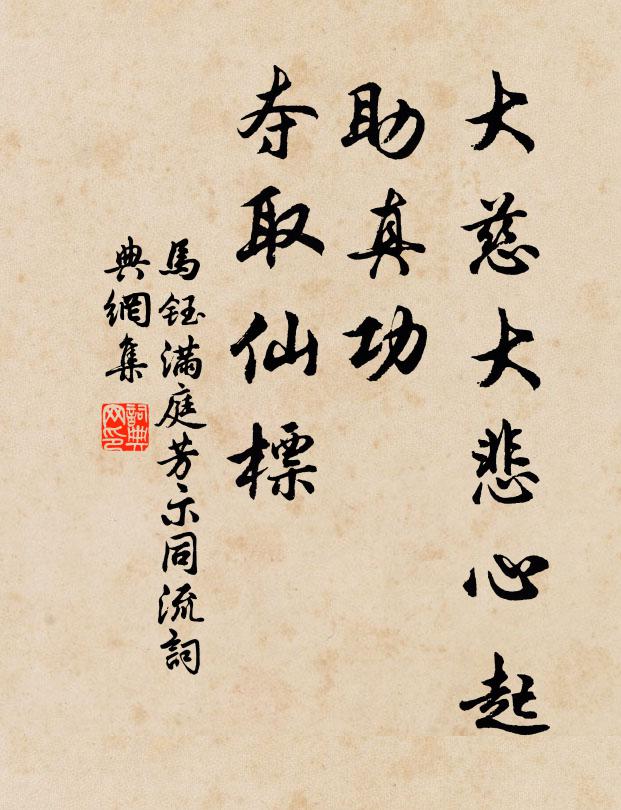 大慈大悲心起
助真功
夺取仙標
馬鈺満庭芳示同流詞
典網集
詞典网印